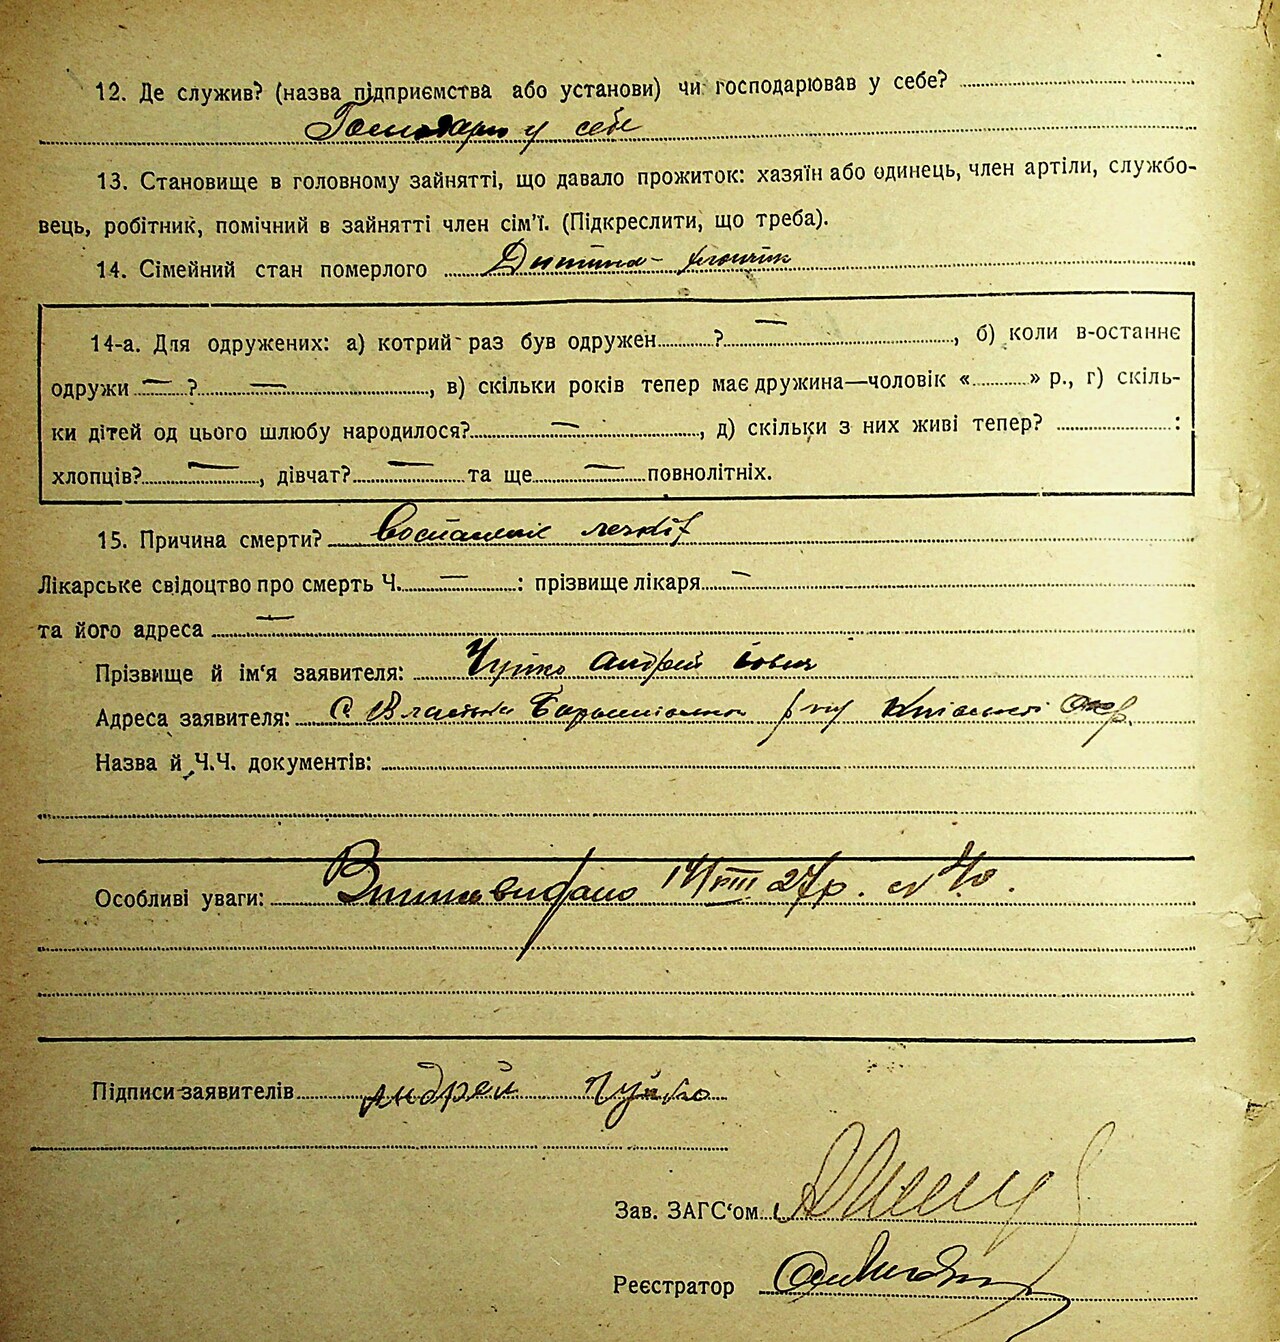 12. Де служив? (назва підприємства або установи) чи господарював у себе?
у себе
13. Становище в головному зайнятті, що давало прожиток: хазяїн або одинець, член артіли, службо-
вець, робітник, помічний в зайнятті член сім'ї. (Підкреслити, що треба).
14. Сімейний стан померлого Дитина-
14-а. Для одружених: а) котрий раз був одружен ? —, б) коли в-останнє
одружи — ? —, в) скільки років тепер має дружина—чоловік « » р., г) скіль-
ки дітей од цього шлюбу народилося? —, д) скільки з них живі тепер? :
хлопців? —, дівчат? — та ще — повнолітніх.
15. Причина смерти?
Лікарське свідоцтво про смерть Ч. — : прізвище лікаря —
та його адреса —
Прізвище й ім'я заявителя: Чуйко Андрей
Адреса заявителя: с Власівки р-ну Київської Окр.
Назва й Ч.Ч. документів:
Особливі уваги: видано 14/VIII 27 р.
Підписи заявителів Андрей Чуйко
Зав. ЗАГС'ом
Реєстратор